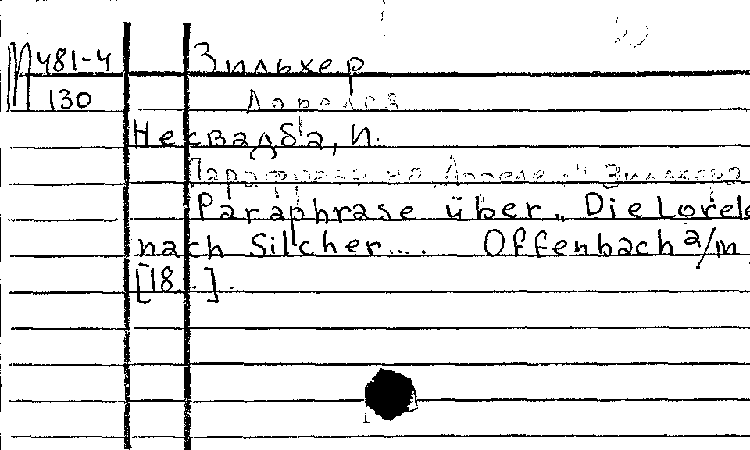 М 481-4 Зильхер
130 Лорелея
Несвадба, И.
Парафраза на „Лорелею" Зильхера
Paraphrase über „Die Lorele
nach Silcher.... Offenbach a/m
[18..].